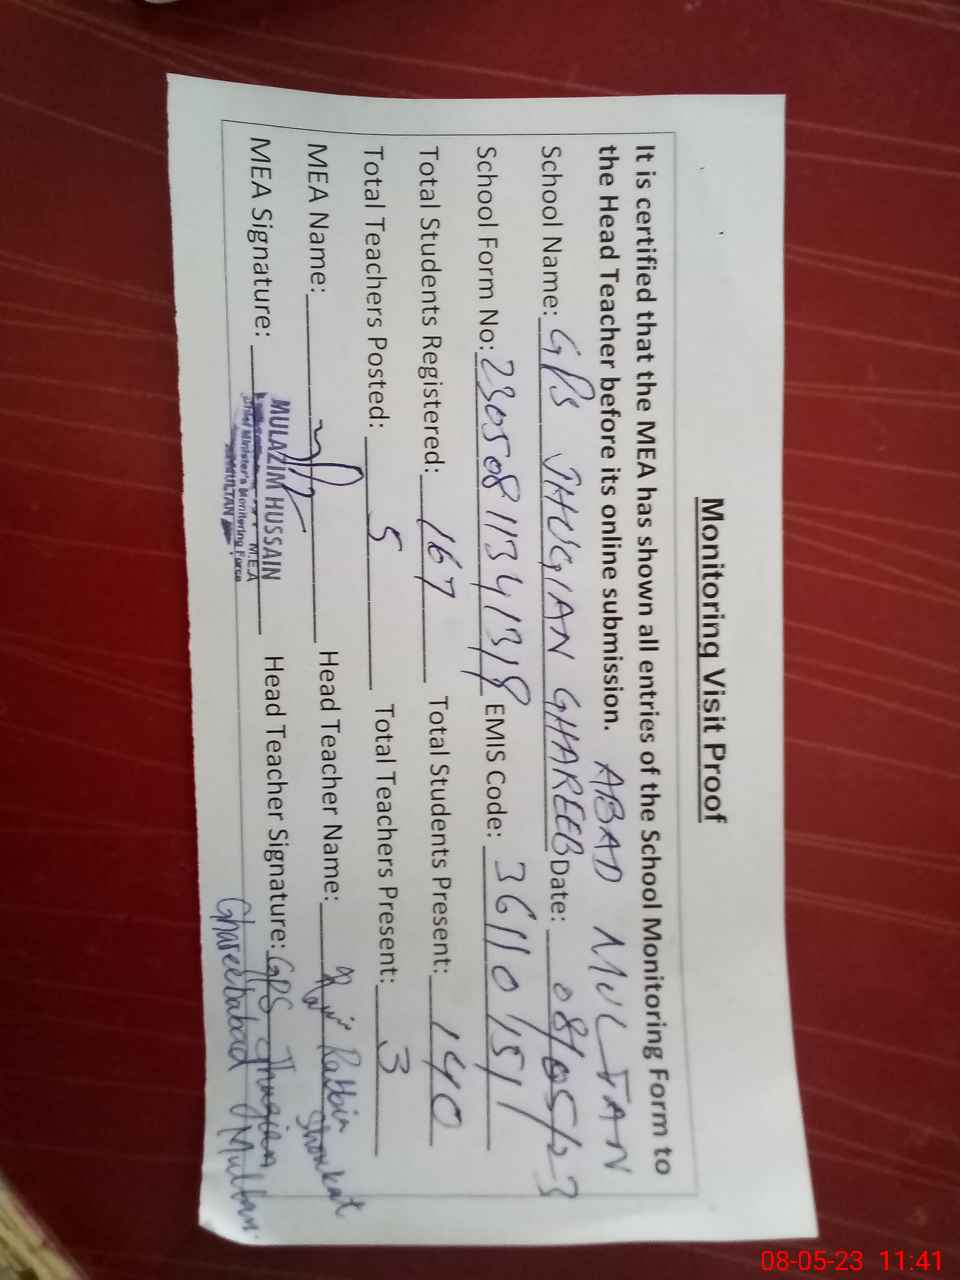 Monitoring Visit Proof
It is certified that the MEA has shown all entries of the School Monitoring Form to
the Head Teacher before its online submission. ABAD MULTAN
School Name: GPS JHUGIAN GHAREEB Date: 08/05/23
School Form No: 23050811341318 EMIS Code: 36110151
Total Students Registered: 167 Total Students Present: 140
Total Teachers Posted: 5 Total Teachers Present: 3
MEA Name: Head Teacher Name: Rabbia
Shoukat
MEA Signature: MULAZIM HUSSAIN Head Teacher Signature: GPS Jhugian
M.E.A
Chief Minister's Monitoring Force
MULTAN
Ghareebabad Multan.
08-05-23 11:41